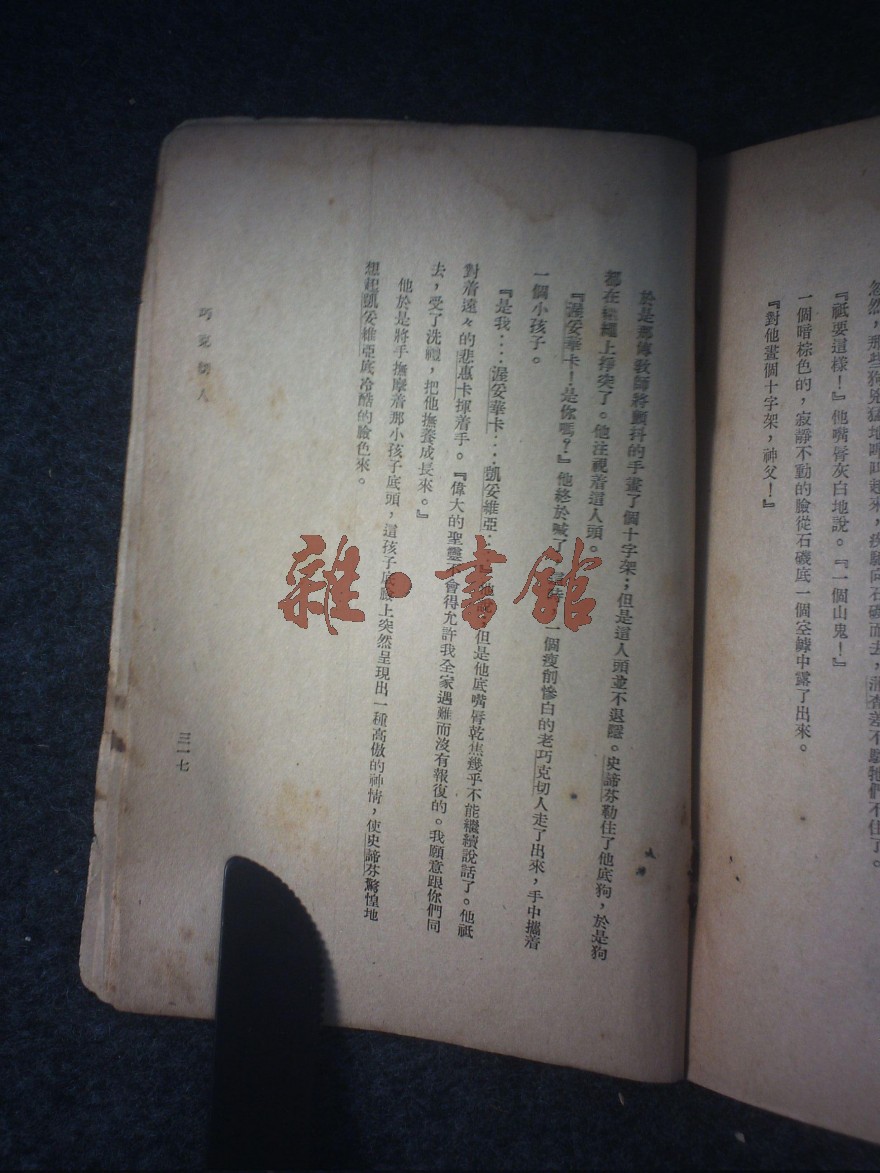 忽然,那些狗兇猛地嘷叫起來,疾馳向石磯而去,滑查差不點牠們不住了。
『祇要這樣!』他嘴唇灰白地說。『一個山鬼!』
一個暗棕色的,寂靜不動的臉從石磯底一個空罅中露了出來。
『對他畫個十字架,神父!』
於是那傳教師將顫抖的手畫了個十字架;但是這人頭並不退隱。史諦芬勒住了他底狗,於是狗
都在韁繩上掙突了。他注視着這人頭。
『渥妥華卡!是你嗎?』他終於喊了 一個瘦削慘白的老巧克切人走了出來,手中攜着
一個小孩子。
『是我....渥妥華卡....凱妥維亞 但是他底嘴唇乾焦幾乎不能繼續說話了。他祇
對着遠々的悲惠卡揮着手。『偉大的聖靈不會得允許我全家遇難而沒有報復的。我願意跟你們同
去,受了洗禮,把他撫養成長來。』
他於是將手撫摩着那小孩子底頭,這孩子底臉上突然呈現出一種高傲的神情,使史諦芬驚惶地
想起凱妥維亞底冷酷的臉色來。
巧克切人
三一七
雜·書館